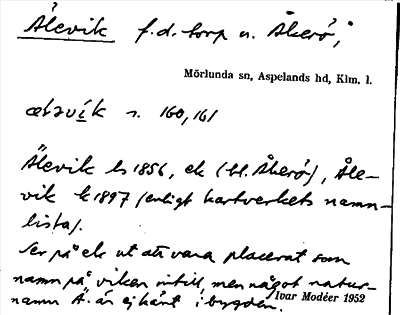 Älevik f.d. torp u. Åkerö,
Mörlunda sn, Aspelands hd, Klm. l.
s. 160, 161
Älevik ls 1856, ek (bl. Åkerö), Åle-
vik k 1897 (enligt kartverkets namn-
lista).
Ser på ek ut att vara placerat som
namn på viken intill, men något natur-
namn Ä. är ej känt i bygden.
Ivar Modéer 1952